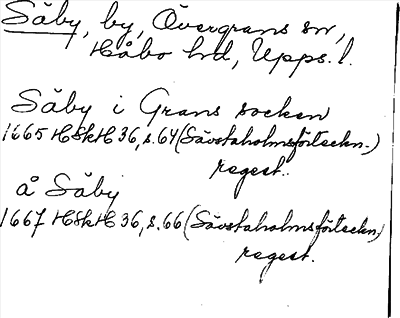 Säby, by, Övergrans sn,
Håbo hd, Upps. l.
Säby i Grans socken
1665 HSkH 36, s. 64 (Sävstaholmsförteckn.)
regest.
å Säby
1667 HSkH 36, s. 66 (Sävstaholmsförteckn.)
regest.